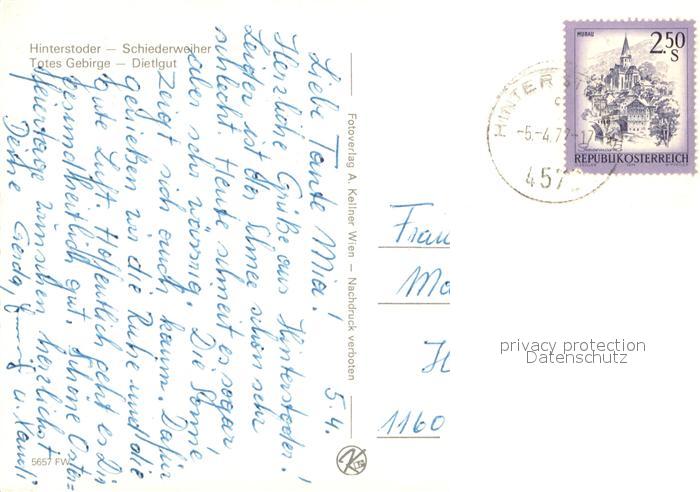 Hinterstoder — Schiederweiher
Totes Gebirge — Dietlgut
5.4.
Liebe Tante Mia!
Herzliche Grüße aus Hinterstoder!
Leider ist der Schnee schon sehr
schlecht. Heute schneit es sogar,
aber sehr wässrig. Die Sonne
zeigt sich auch kaum. Dafür
genießen wir die Ruhe und die
gute Luft. Hoffentlich geht es Dir
gesundheitlich gut. Schöne Oster=
feiertage wünschen herzlichst
Deine Gerda, u.
5657 FW
Fotoverlag A. Kellner Wien — Nachdruck verboten
MURAU
2.50
S
REPUBLIK ÖSTERREICH
HINTERST
-5.-4.77-17
457
Frau
Ma
H
1160
privacy protection
Datenschutz